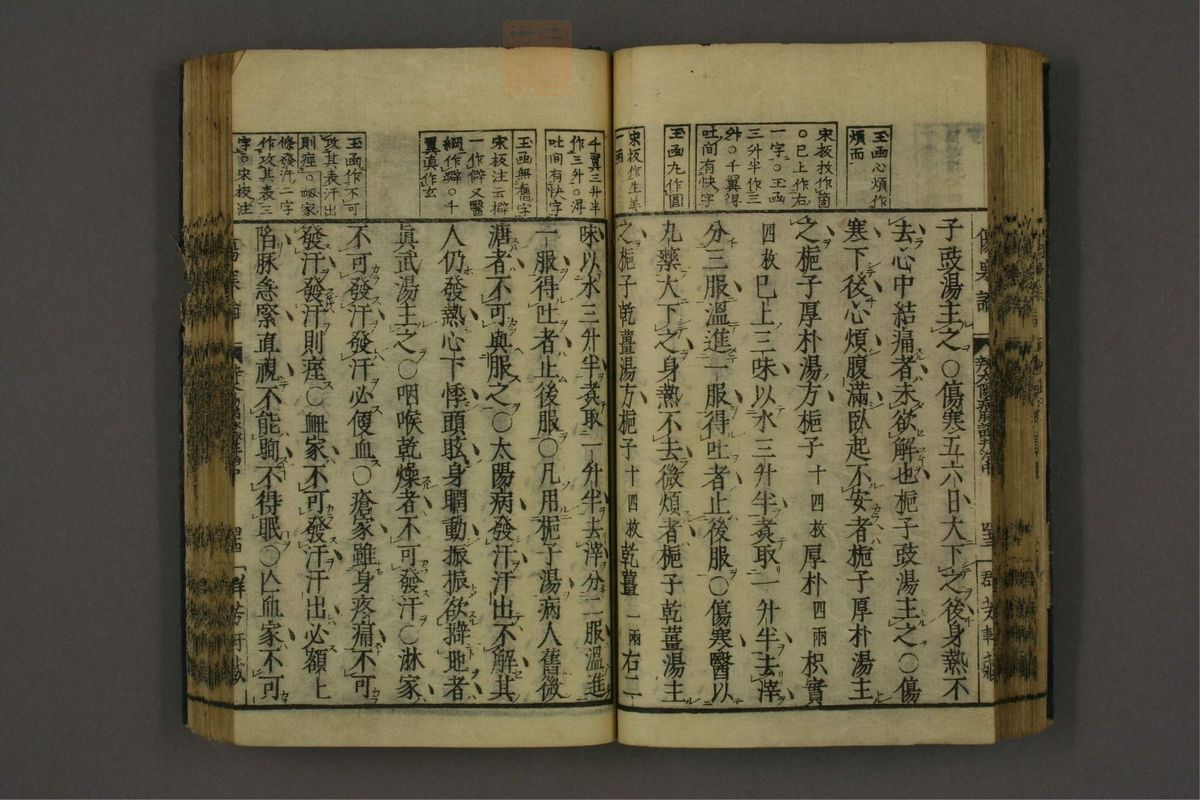 玉函心煩作
煩而
宋板枚作箇
○已上作右
一字○玉函
三升半作三
升○千翼得
吐间有快字
玉函九作圓
宋板作生姜
一兩
子豉湯主之○傷寒五六日大下之後身熱不
去心中結痛者未欲解也梔子豉湯主之○傷
寒下後心煩腹滿臥起不安者梔子厚朴湯主
之梔子厚朴湯方梔子十四枚厚朴四兩枳實
四枚巳上三味以水三升半煑取一升半去滓
分三服溫進一服得吐者止後服○傷寒醫以
丸藥大下之身熱不去微煩者梔子乾薑湯主
之梔子乾薑湯方梔子十四枚乾薑一兩右二
千翼三升半
作三升○得
吐间有快字
玉函無舊字
宋板注云擗
一作僻又醫
綱作癖○千
翼眞作玄
玉函作不可
攻其表汗出
則痓○衂家
條發汗二字
作攻其表三
字○宋板注
味以水三升半煑取一升半去滓分二服溫進
一服得吐者止後服○凡用梔子湯病人舊微
溏者不可與服之○太陽病發汗汗出不解其
人仍發熱心下悸頭眩身瞤動振振欲擗地者
眞武湯主之○咽喉乾燥者不可發汗○淋家
不可發汗發汗必便血○瘡家雖身疼痛不可
發汗發汗則痓○衂家不可發汗汗出必額上
陷脉急緊直視不能眴不得眠○亡血家不可